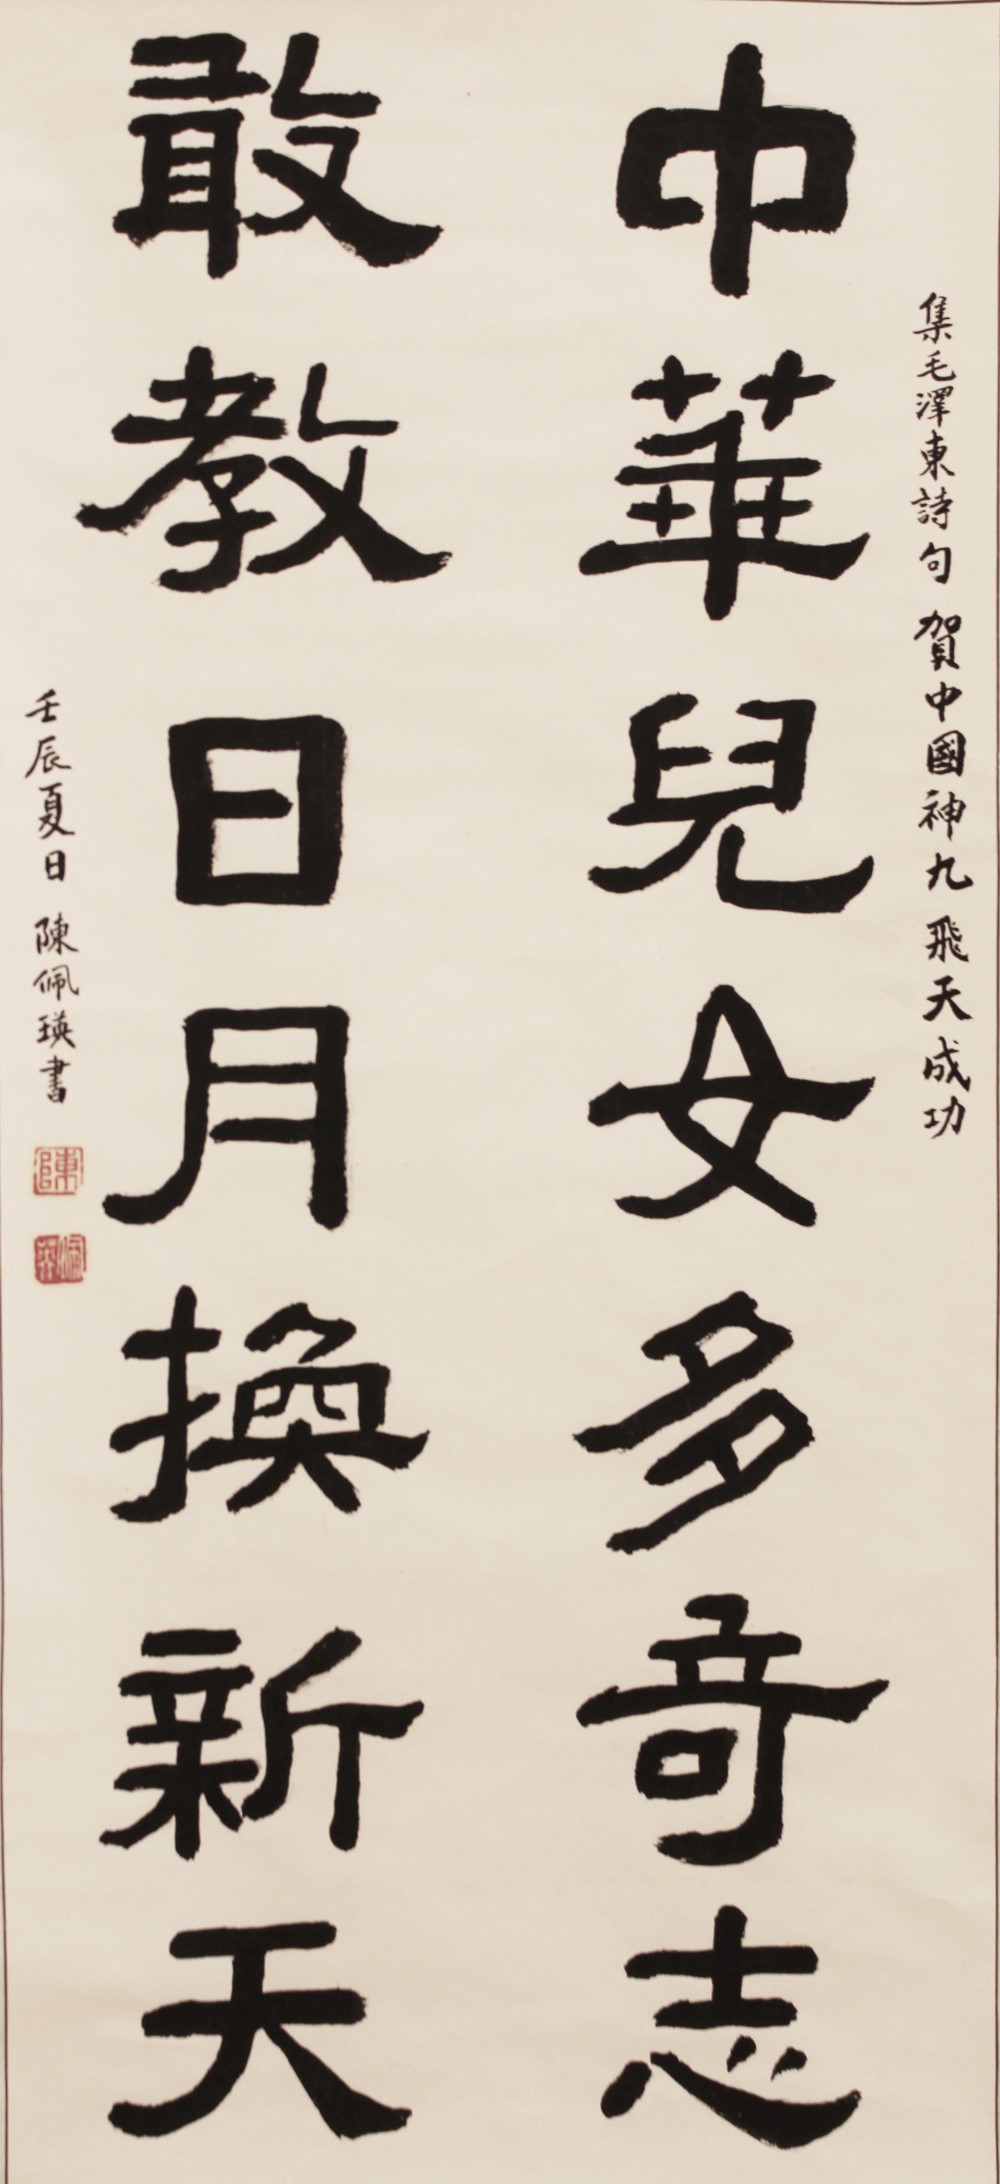 集毛澤東詩句 賀中國神九飛天成功
中華兒女多奇志
敢教日月換新天
壬辰夏日 陳佩瑛書
陳
佩瑛